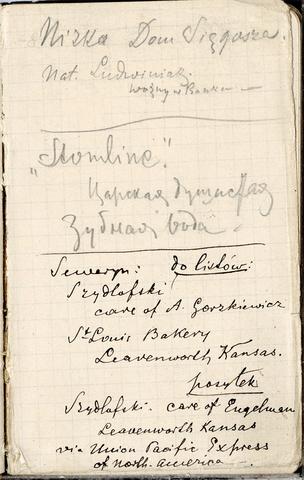 Nizka Dom Sięgosza.
Nat. Ludwiniak
woźny w Banku —
„Stomline."
Царская душистая
Зубная вода
Seweryn: do listów:
Szydlofski
care of A. Gorzkiewicz
St Louis Bakery
Leavenworth, Kansas.
posyłek
Szydlofski. care of Engelman
Leavenworth Kansas
via Union Pacific Express
of North-America —